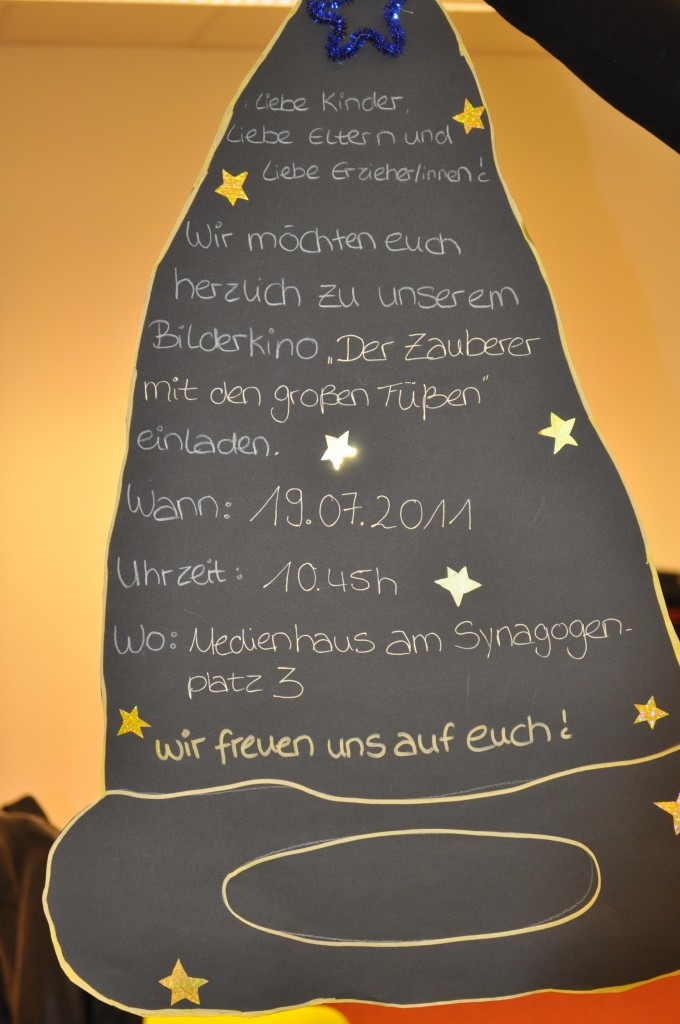 Liebe Kinder,
Liebe Eltern und
Liebe Erzieher/innen!
Wir möchten euch
herzlich zu unserem
Bilderkino „Der Zauberer
mit den großen Füßen"
einladen.
Wann: 19.07.2011
Uhrzeit: 10.45h
Wo: Medienhaus am Synagogen-
platz 3
wir freuen uns auf euch!